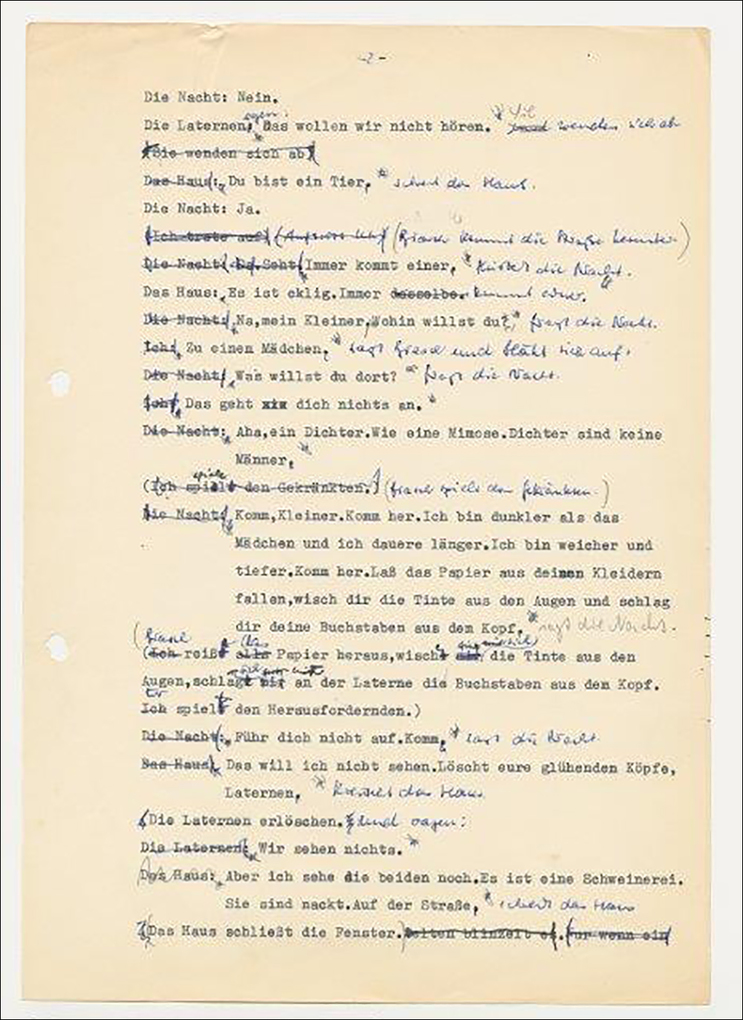 -2-
Die Nacht: Nein.
Die Laternen, sagen: Das wollen wir nicht hören. wenden sich ab
(Sie wenden sich ab)
Das Haus: Du bist ein Tier, schreit das Haus.
Die Nacht: Ja.
(Ich trete auf) (Brasch kommt die Straße herunter.)
Die Nacht: Da. Seht Immer kommt einer, flüstert die Nacht.
Das Haus: Es ist eklig.Immer dasselbe. kommt einer.
Die Nacht: Na,mein Kleiner,Wohin willst du?, fragt die Nacht.
Ich: Zu einem Mädchen, sagt Brasch und bläht sich auf.
Die Nacht: Was willst du dort? fragt die Nacht.
Ich: Das geht xix dich nichts an.
Die Nacht: Aha,ein Dichter.Wie eine Mimose.Dichter sind keine
Männer,
(Ich spiele den Gekränkten.) (Brasch spielt den Gekränkten.)
Die Nacht: Komm,Kleiner.Komm her.Ich bin dunkler als das
Mädchen und ich dauere länger.Ich bin weicher und
tiefer.Komm her.Laß das Papier aus deinen Kleidern
fallen,wisch dir die Tinte aus den Augen und schlag
dir deine Buchstaben aus dem Kopf, sagt die Nacht.
(Brasch
(Ich reißt alls das Papier heraus,wischt die Tinte aus den
Augen,schlägt mir an der Laterne die Buchstaben aus dem Kopf.
Er
Ich spielt den Herausfordernden.)
Die Nacht: Führ dich nicht auf.Komm, sagt die Nacht
Das Haus: Das will ich nicht sehen.Löscht eure glühenden Köpfe,
Laternen, kreischt das Haus
(Die Laternen erlöschen. und sagen:
Die Laternen: Wir sehen nichts.
Das Haus: Aber ich sehe die beiden noch.Es ist eine Schweinerei.
Sie sind nackt.Auf der Straße, schreit das Haus
(Das Haus schließt die Fenster.) Selten blinzelt es. (Nur wenn ein